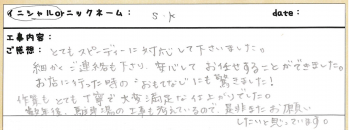 イニシャルorニックネーム： S.K date：
工事内容：
ご感想：とてもスピーディーに対応して下さいました。
細かくご連絡も下さり、安心してお任せすることができました。
お店に行った時の"おもてなし"にも驚きました！
作業もとても丁寧で大変満足な仕上がりでした。
数年後、駐車場の工事も考えているので、是非またお願い
したいと思っています。